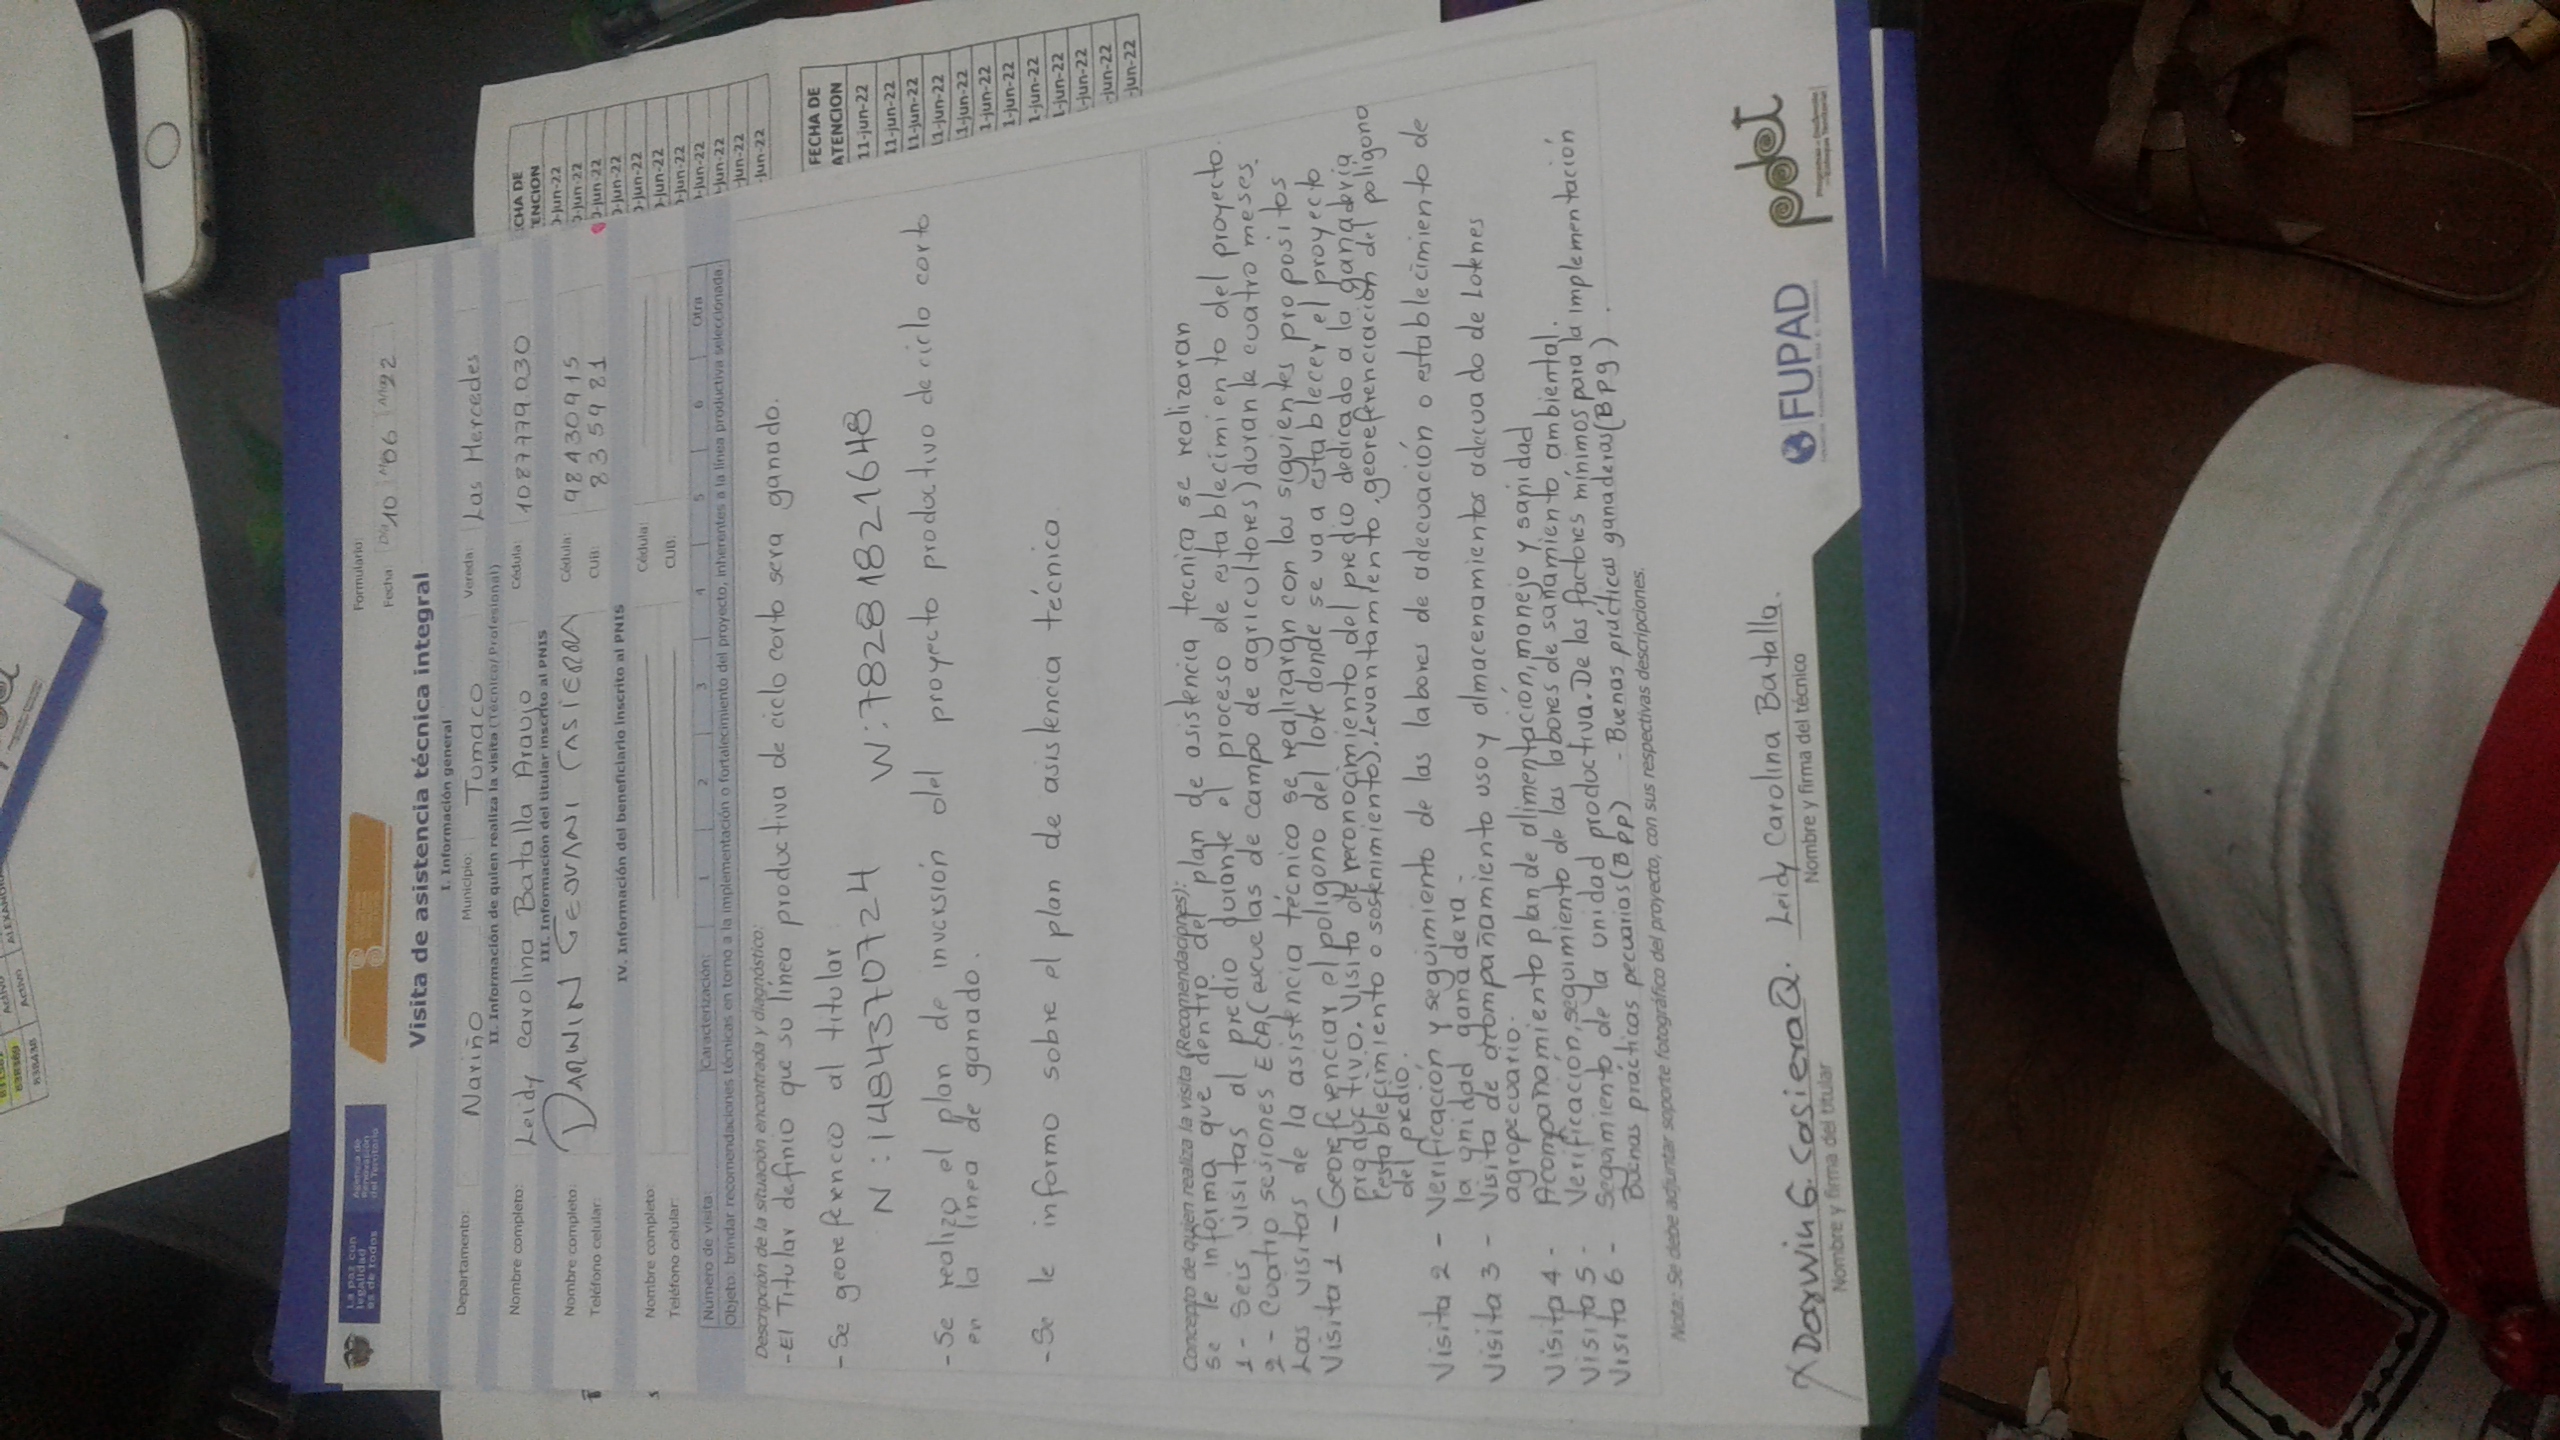 La paz con
legalidad
es de todos
Agencia de
Renovación
del Territorio
Formulario:
Fecha Día 10 M 06 Año 22
Visita de asistencia técnica integral
I. Información general
Departamento: Nariño Municipio: Tumaco Vereda: Las Mercedes
II. Información de quien realiza la visita (Técnico/Profesional)
Nombre completo: Leidy carolina Batalla Araujo Cédula: 1087779.030
III. Información del titular inscrito al PNIS
Nombre completo: DARWIN GEOVANI CASIERRA Cédula: 98430915
Teléfono celular: CUB: 835981
IV. Información del beneficiario inscrito al PNIS
Nombre completo: Cédula:
Teléfono celular: CUB:
Número de visita: Caracterización: 1 2 3 4 5 6 Otra
Objeto: brindar recomendaciones técnicas en torno a la implementación o fortalecimiento del proyecto, inherentes a la línea productiva seleccionada.
Descripción de la situación encontrada y diagnóstico:
-El Titular definio que su línea productiva de ciclo corto sera ganado.
-Se georeferencco al titular
N: 1484370724 W: 78281821648
-Se realizo el plan de inversión del proyecto productivo de ciclo corto
en la linea de ganado.
-Se le informo sobre el plan de asistencia técnico.
Concepto de quien realiza la visita (Recomendaciones):
se le informa que dentro del plan de asistencia tecnica se realizaran
1 - Seis visitas al predio durante el proceso de establecimiento del proyecto.
2 - Cuatro sesiones ECA (escuelas de campo de agricultores) durante cuatro meses.
Las visitas de la asistencia técnico se realizaran con los siguientes propositos
Visita 1 - Georeferenciar el poligono del lote donde se va a establecer el proyecto
productivo. Visita de reconocimiento del predio dedicado a la ganaderia
(establecimiento o sostenimiento). Levantamiento, georeferenciación del poligono
del predio.
Visita 2 - Verificación y seguimiento de las labores de adecuación o establecimiento de
la unidad ganadera.
Visita 3 - Visita de acompañamiento uso y almacenamientos adecuado de Lotenes
agropecuario.
Visita 4 - Acompañamiento plan de alimentación, manejo y sanidad
Visita 5 - Verificación, seguimiento de las labores de sanamiento ambiental.
Visita 6 - Seguimiento de la unidad productiva. De las factores mínimos para la implementación
Buenas prácticas pecuarias (BPP) - Buenas prácticas ganaderas (BPg).
Nota: Se debe adjuntar soporte fotográfico del proyecto, con sus respectivas descripciones.
X Darwin G. Casierra Q. Leidy Carolina Batalla.
Nombre y firma del titular Nombre y firma del técnico
FUPAD
pdet
Programas de Desarrollo
con Enfoque Territorial
CHA DE
ENCION
-jun-22
-jun-22
-jun-22
-jun-22
-jun-22
-jun-22
-jun-22
-jun-22
-jun-22
-jun-22
-jun-22
FECHA DE
ATENCION
11-jun-22
11-jun-22
11-jun-22
11-jun-22
11-jun-22
1-jun-22
1-jun-22
1-jun-22
1-jun-22
-jun-22
-jun-22
-jun-22
Activo
Activo
838369
838438